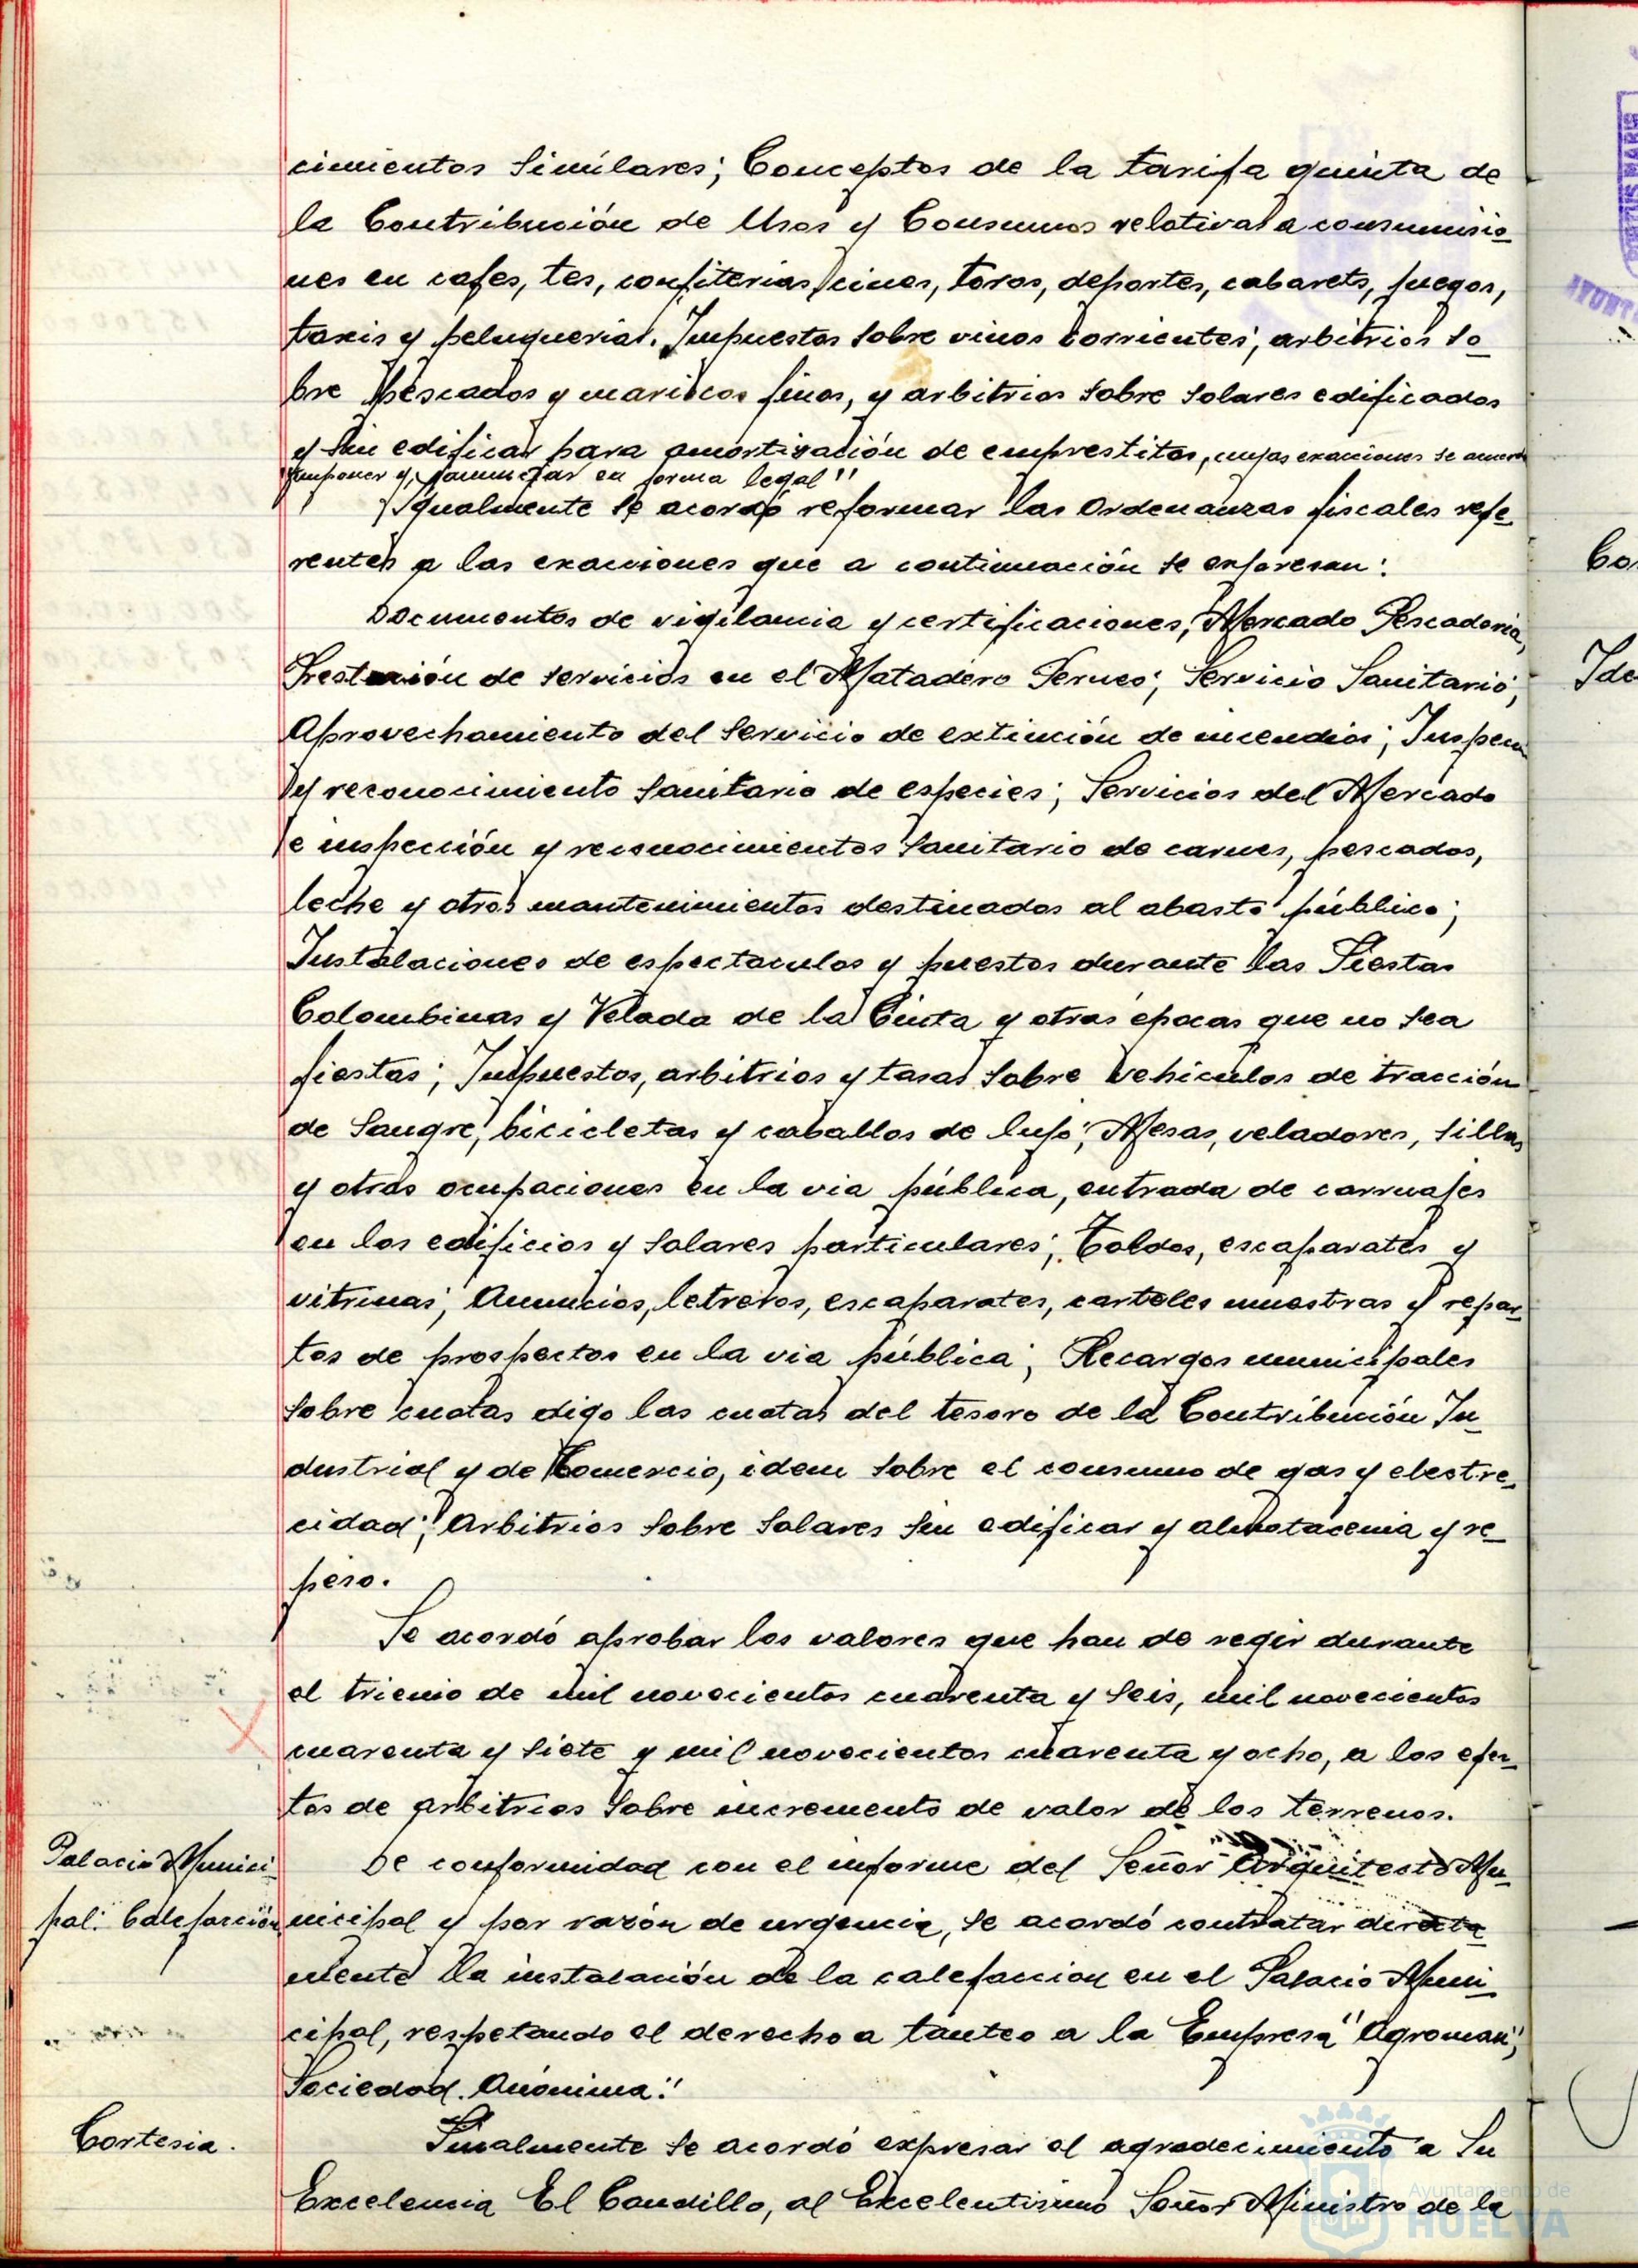 cimientos similares; Conceptos de la tarifa quinta de
la Contribución de Usos y Consumos relativas a consumisio-
nes en cafes, tes, confiterias, cines, toros, deportes, cabarets, juegos,
taxis y peluquerias. Impuestos sobre vinos corrientes; arbitrios so-
bre pescados y mariscos finos, y arbitrios sobre solares edificados
y sin edificar para amortización de emprestitos, cuyas exacciones se acuerda
imponer y tramitar en forma legal"
Igualmente se acordó reformar las Ordenanzas fiscales refe-
rentes a las exacciones que a continuación se expresan:
Documentos de vigilancia y certificaciones, Mercado Pescaderia,
Prestación de servicios en el Matadero Ferneo; Servicio Sanitario;
Aprovechamiento del servicio de extinción de incendios; Inspecn
y reconocimiento sanitario de especies; Servicios del Mercado
e inspección y reconocimientos sanitario de carnes, pescados,
leche y otros mantenimientos destinados al abasto público;
Instalaciones de espectaculos y puestos durante las Fiestas
Colombinas y Velada de la Cinta y otras épocas que no sea
fiestas; Impuestos, arbitrios y tasas sobre vehiculos de tracción
de sangre, bicicletas y caballos de lujo; Mesas, veladores, sillas
y otras ocupaciones en la via pública, entrada de carruajes
en los edificios y solares particulares; Toldos, escaparates y
vitrinas; Anuncios, letreros, escaparates, carteles muestras y repar-
tos de prospectos en la via pública; Recargos municipales
sobre cuotas digo las cuotas del tesoro de la Contribución In-
dustrial y de Comercio, idem sobre el consumo de gas y electre-
cidad; Arbitrios sobre solares sin edificar y almotacenia y re-
peso.
Se acordó aprobar los valores que han de regir durante
el trienio de mil novecientos cuarenta y seis, mil novecientos
cuarenta y siete y mil novecientos cuarenta y ocho, a los efec-
tos de arbitrios sobre incremento de valor de los terrenos.
Palacio Munici
pal: Calefacción
De conformidad con el informe del Señor Arquitecto Mu-
nicipal y por razón de urgencia, se acordó contratar directa-
mente la instalación de la calefaccion en el Palacio Muni-
cipal, respetando el derecho a tanteo a la Empresa "Agroman",
Sociedad Anónima."
Cortesia.
Finalmente se acordó expresar el agradecimiento a Su
Excelencia El Caudillo, al Excelentisimo Señor Ministro de la
Ayuntamiento de
HUELVA